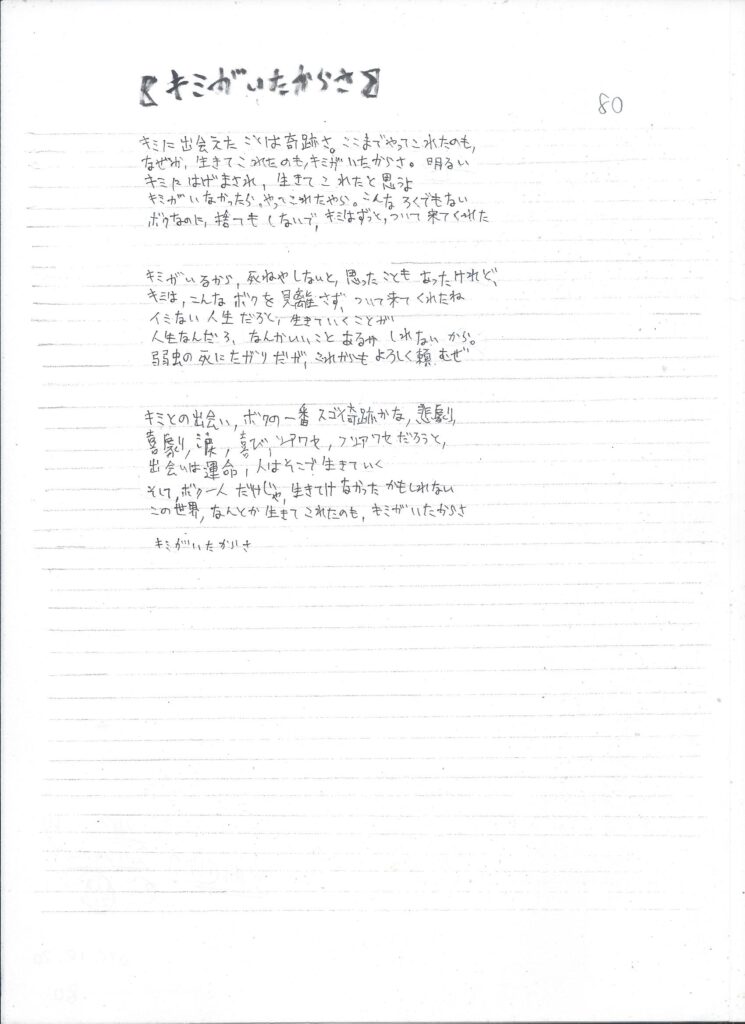 【キミがいたからさ】
80
キミに出会えたことは奇跡さ。ここまでやってこれたのも,
なぜか, 生きてこれたのも, キミがいたからさ。明るい
キミにはげまされ, 生きてこれたと思うよ
キミがいなかったら, やってこれたやら。こんなろくでもない
ボクなのに, 捨てもしないで, キミはずっと, ついて来てくれた
キミがいるから, 死ねやしないと, 思ったこともあったけれど,
キミは, こんなボクを見離さず, ついて来てくれたね
イミない人生だろと, 生きていくことが
人生なんだろ, なんかいいことあるかもしれないから。
弱虫の死にたがりだが, これからもよろしく頼むぜ
キミとの出会い, ボクの一番スゴイ奇跡かな, 悲劇,
喜劇, 涙, 喜び, シアワセ, フシアワセだろうと,
出会いは運命, 人はそこで生きていく
そして, ボク一人だけじゃ, 生きてけなかったかもしれない
この世界, なんとか生きてこれたのも, キミがいたからさ
キミがいたからさ